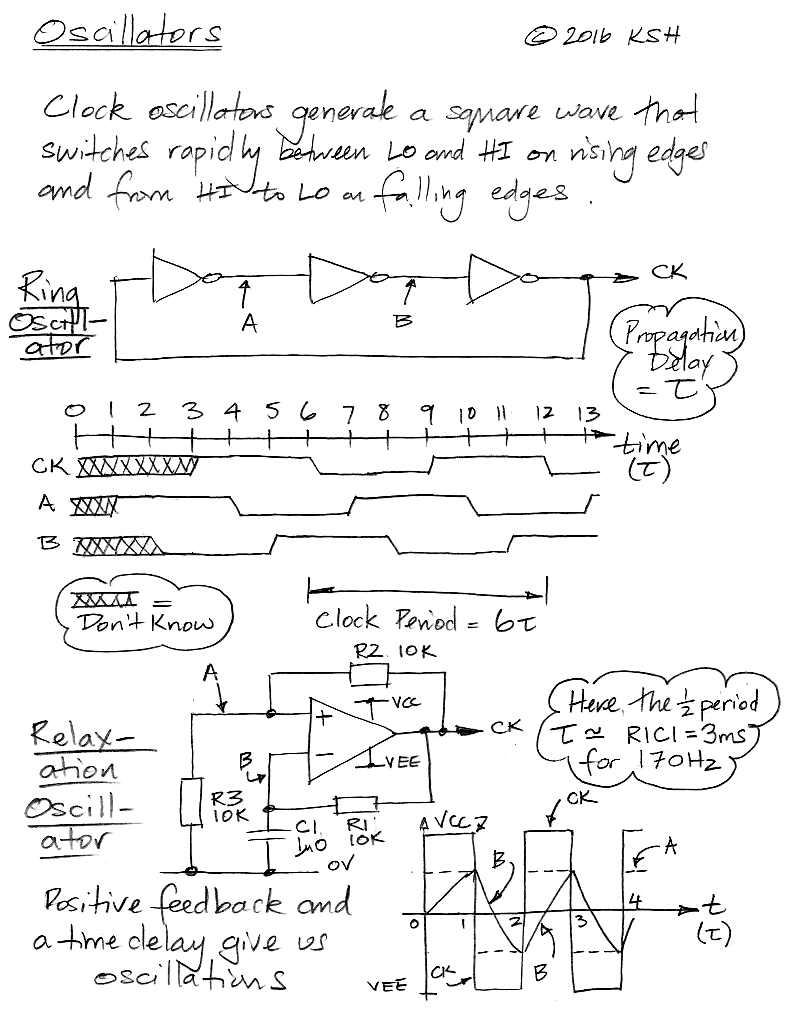 Oscillators
© 2016 KSH
Clock oscillators generate a square wave that
switches rapidly between LO and HI on rising edges
and from HI to LO on falling edges.
Ring
Oscill-
ator
A
B
CK
Propagation
Delay
= τ
0 1 2 3 4 5 6 7 8 9 10 11 12 13
time
(τ)
CK
A
B
=
Don't Know
Clock Period = 6τ
R2 10K
A
+
VCC
CK
−
VEE
B
R3
10K
C1
1µ0
R1
10K
0V
Relax-
ation
Oscill-
ator
Here, the ½ period
τ ≃ R1C1 = 3ms
for 170Hz
Positive feedback and
a time delay give us
oscillations
VCC
CK
A
B
0 1 2 3 4
t
(τ)
CK
B
VEE